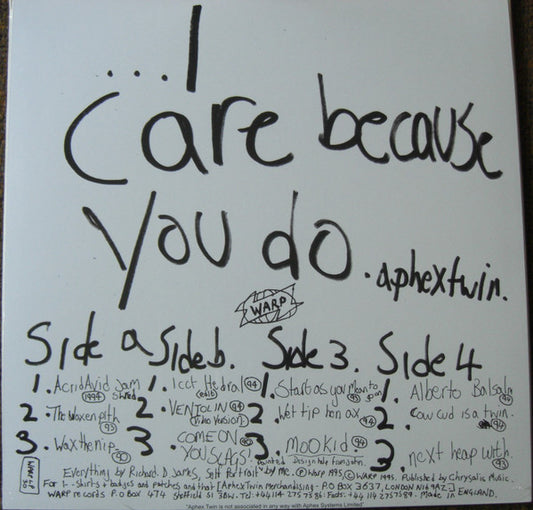 ...I
Care because
you do. aphextwin.
WARP
Side a Side b. Side 3. Side 4
1. AcridAvid Jam Shred 1994
2. The Waxen pth 93
3. Wax the nip 90
1. Icct Hedral (edit) 94
2. VENTOLIN (Video Version) 94
3 COME ON YOU SLAGS!
1. Start as you Mean to go on
2 Wet tip hen ax 94
3. Mookid 94
1. Alberto Balsalm 94
2. Cow cud is a twin.
3 next heap with. 93
Everything by Richard. D. James, Self Portrait painted by me. Designy blah from John. Ⓟ Warp 1995. © WARP 1995. Published by Chrysalis Music.
For T-Shirts & badges and patches and that [Aphex Twin Merchandising - P.O BOX 3637, LONDON N14 9AZ]
WARP records P.O Box 474 Sheffield S1 3BW. Tel: +44 114 275 7586. Fads: +44 114 2757589. Made in ENGLAND.
"Aphex Twin is not associated in any way with Aphex Systems Limited"